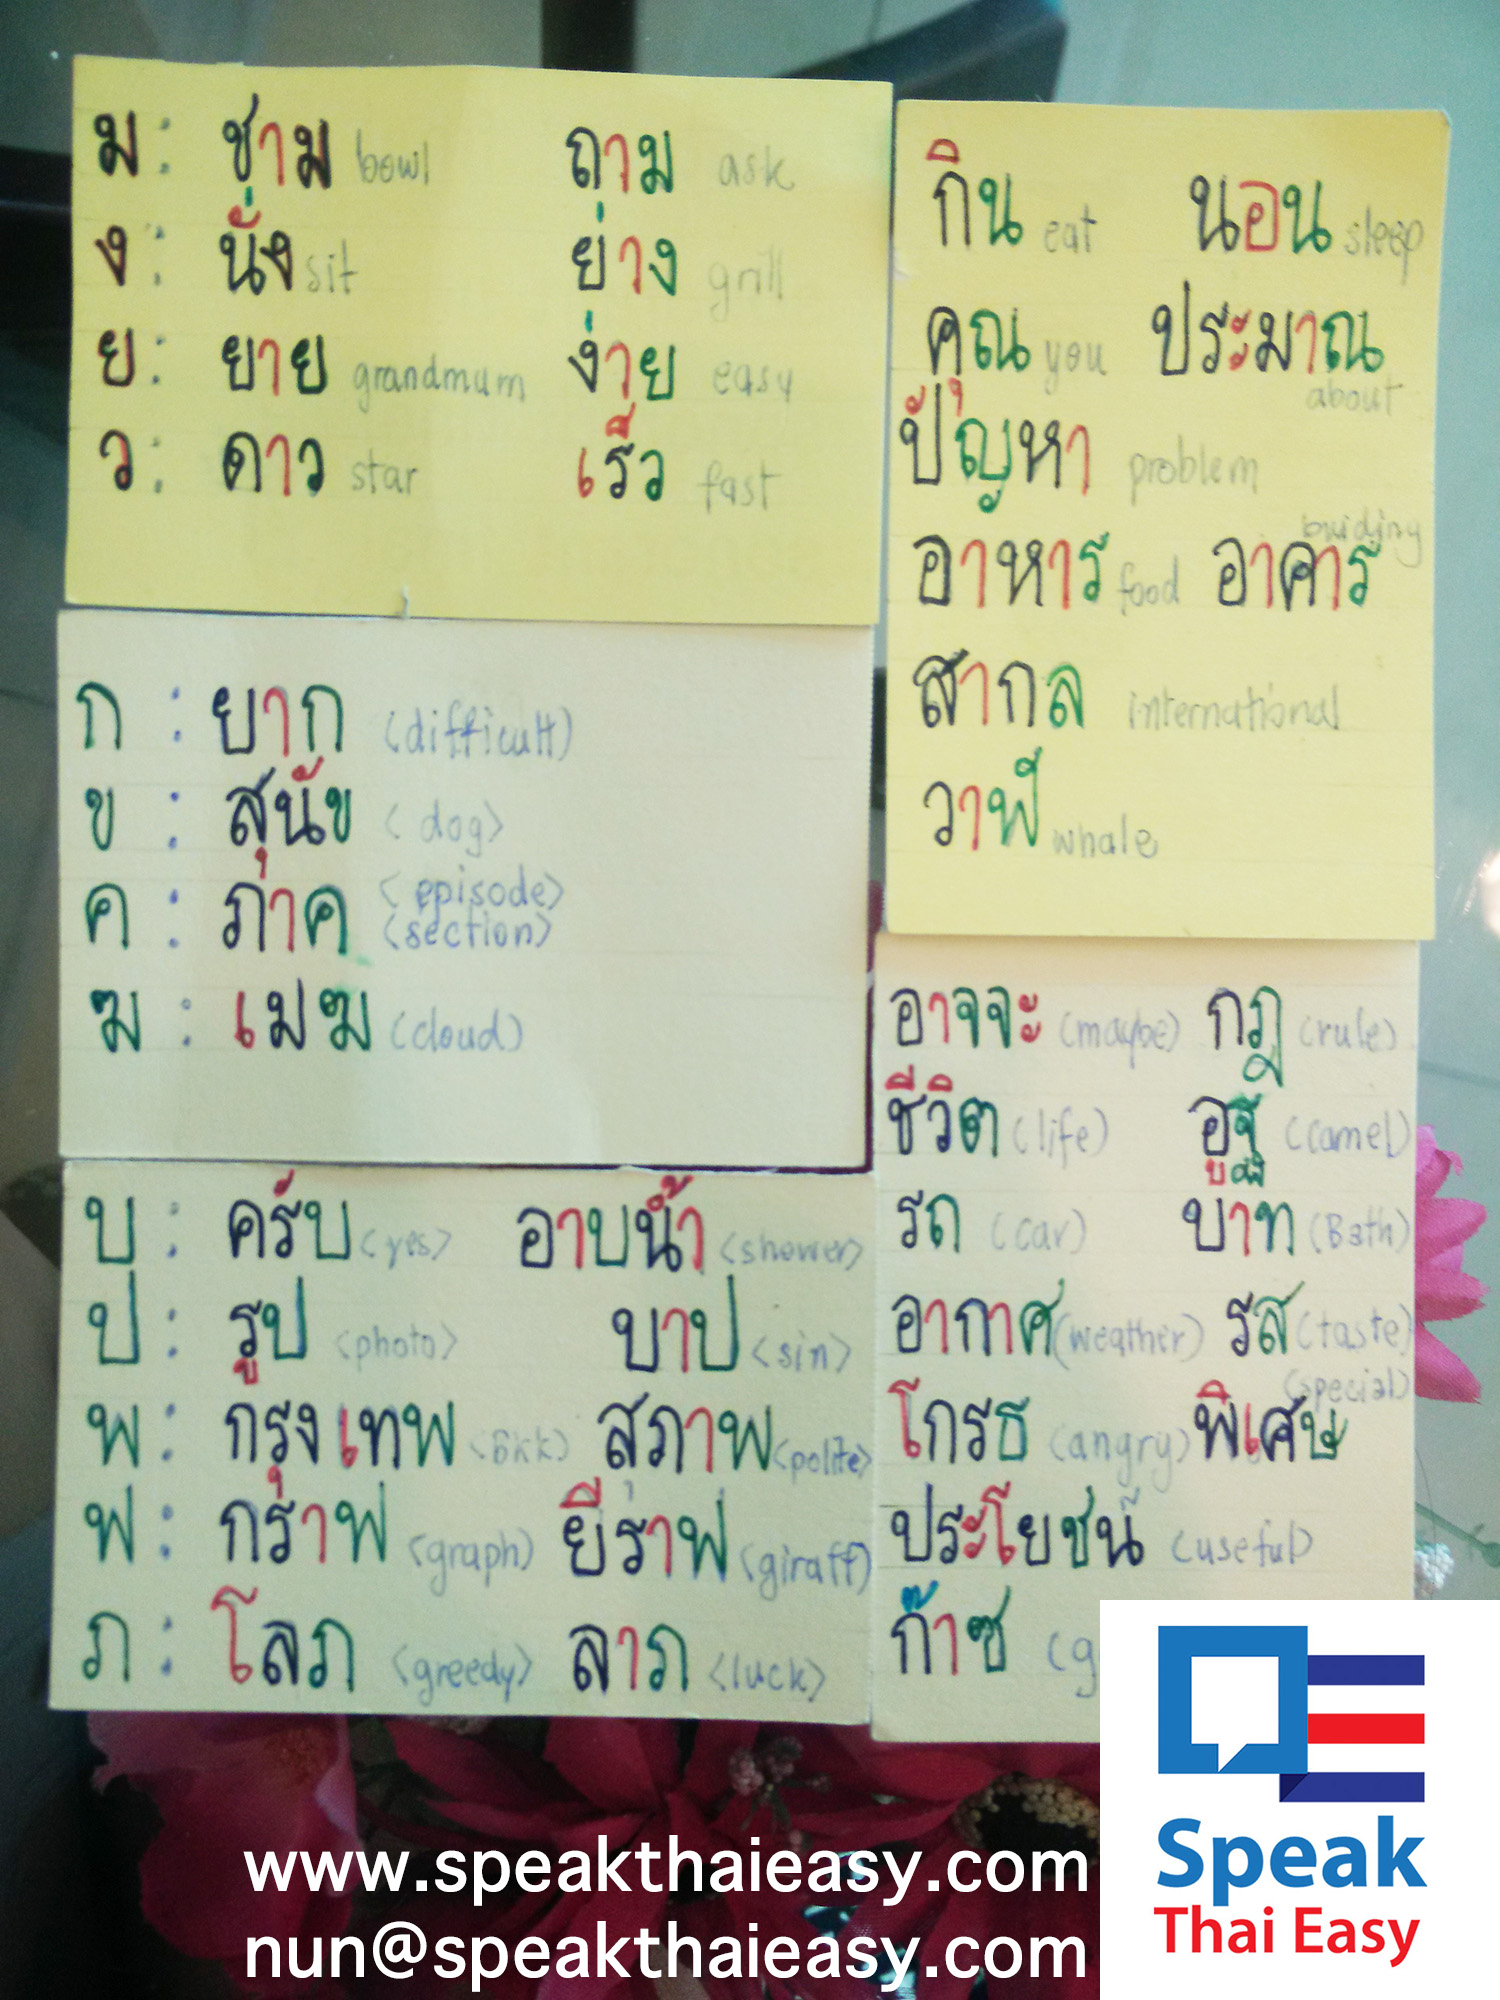 ม : ชาม bowl ถาม ask
ง : นั่ง sit ย่าง grill
ย : ยาย grandmum ง่าย easy
ว : ดาว star เร็ว fast
กิน eat นอน sleep
คุณ you ประมาณ about
ปัญหา problem
อาหาร food อาคาร buiding
สากล international
วาฬ whale
ก : ยาก (difficult)
ข : สุนัข <dog>
ค : ภาค <episode>
<section>
ฆ : เมฆ (cloud)
บ : ครับ <yes> อาบน้ำ <shower>
ป : รูป <photo> บาป <sin>
พ : กรุงเทพ <BKK> สุภาพ <polite>
ฟ : กราฟ <graph> ยีราฟ (giraff)
ภ : โลภ <greedy> ลาภ <luck>
อาจจะ (maybe) กฎ (rule)
ชีวิต (life) อูฐ (camel)
รถ (car) บาท (Bath)
อากาศ (weather) รส (taste)
โกรธ (angry) พิเศษ (special)
ประโยชน์ (useful)
ก๊าซ (g
www.speakthaieasy.com
nun@speakthaieasy.com
Speak
Thai Easy